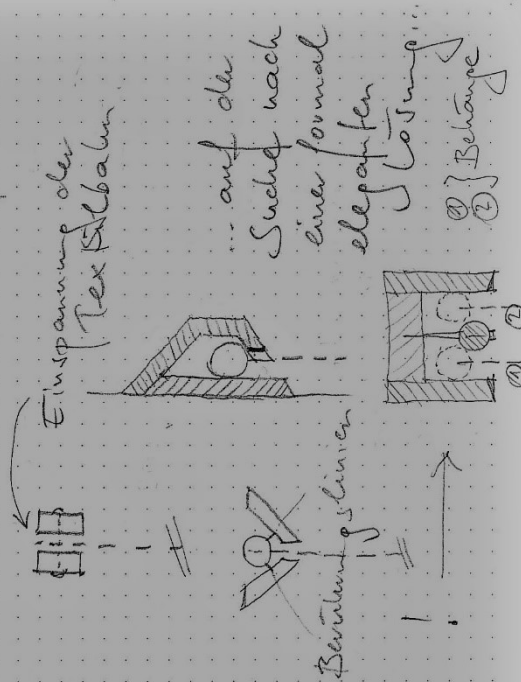 Einspannung der
Textilbahn
... auf der
Suche nach
einer formal
eleganten
Lösung...
① } Behänge
②
Berührungslinien
!
① ②